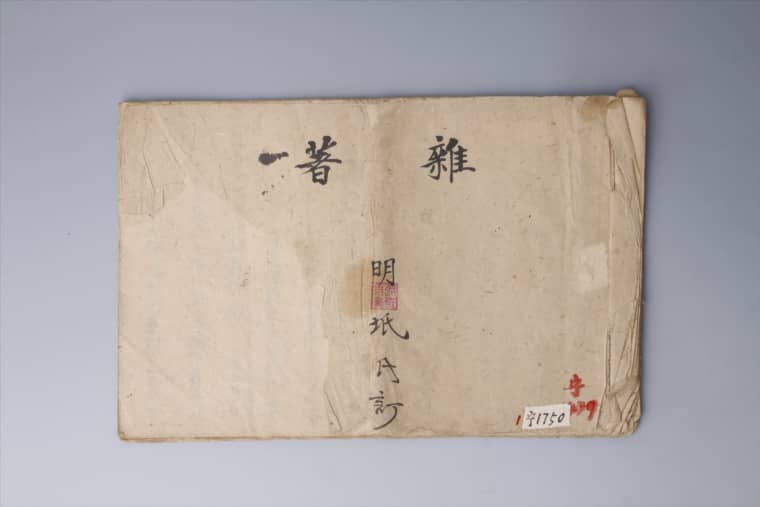 雜著一
明坻氏訂
字
字1750